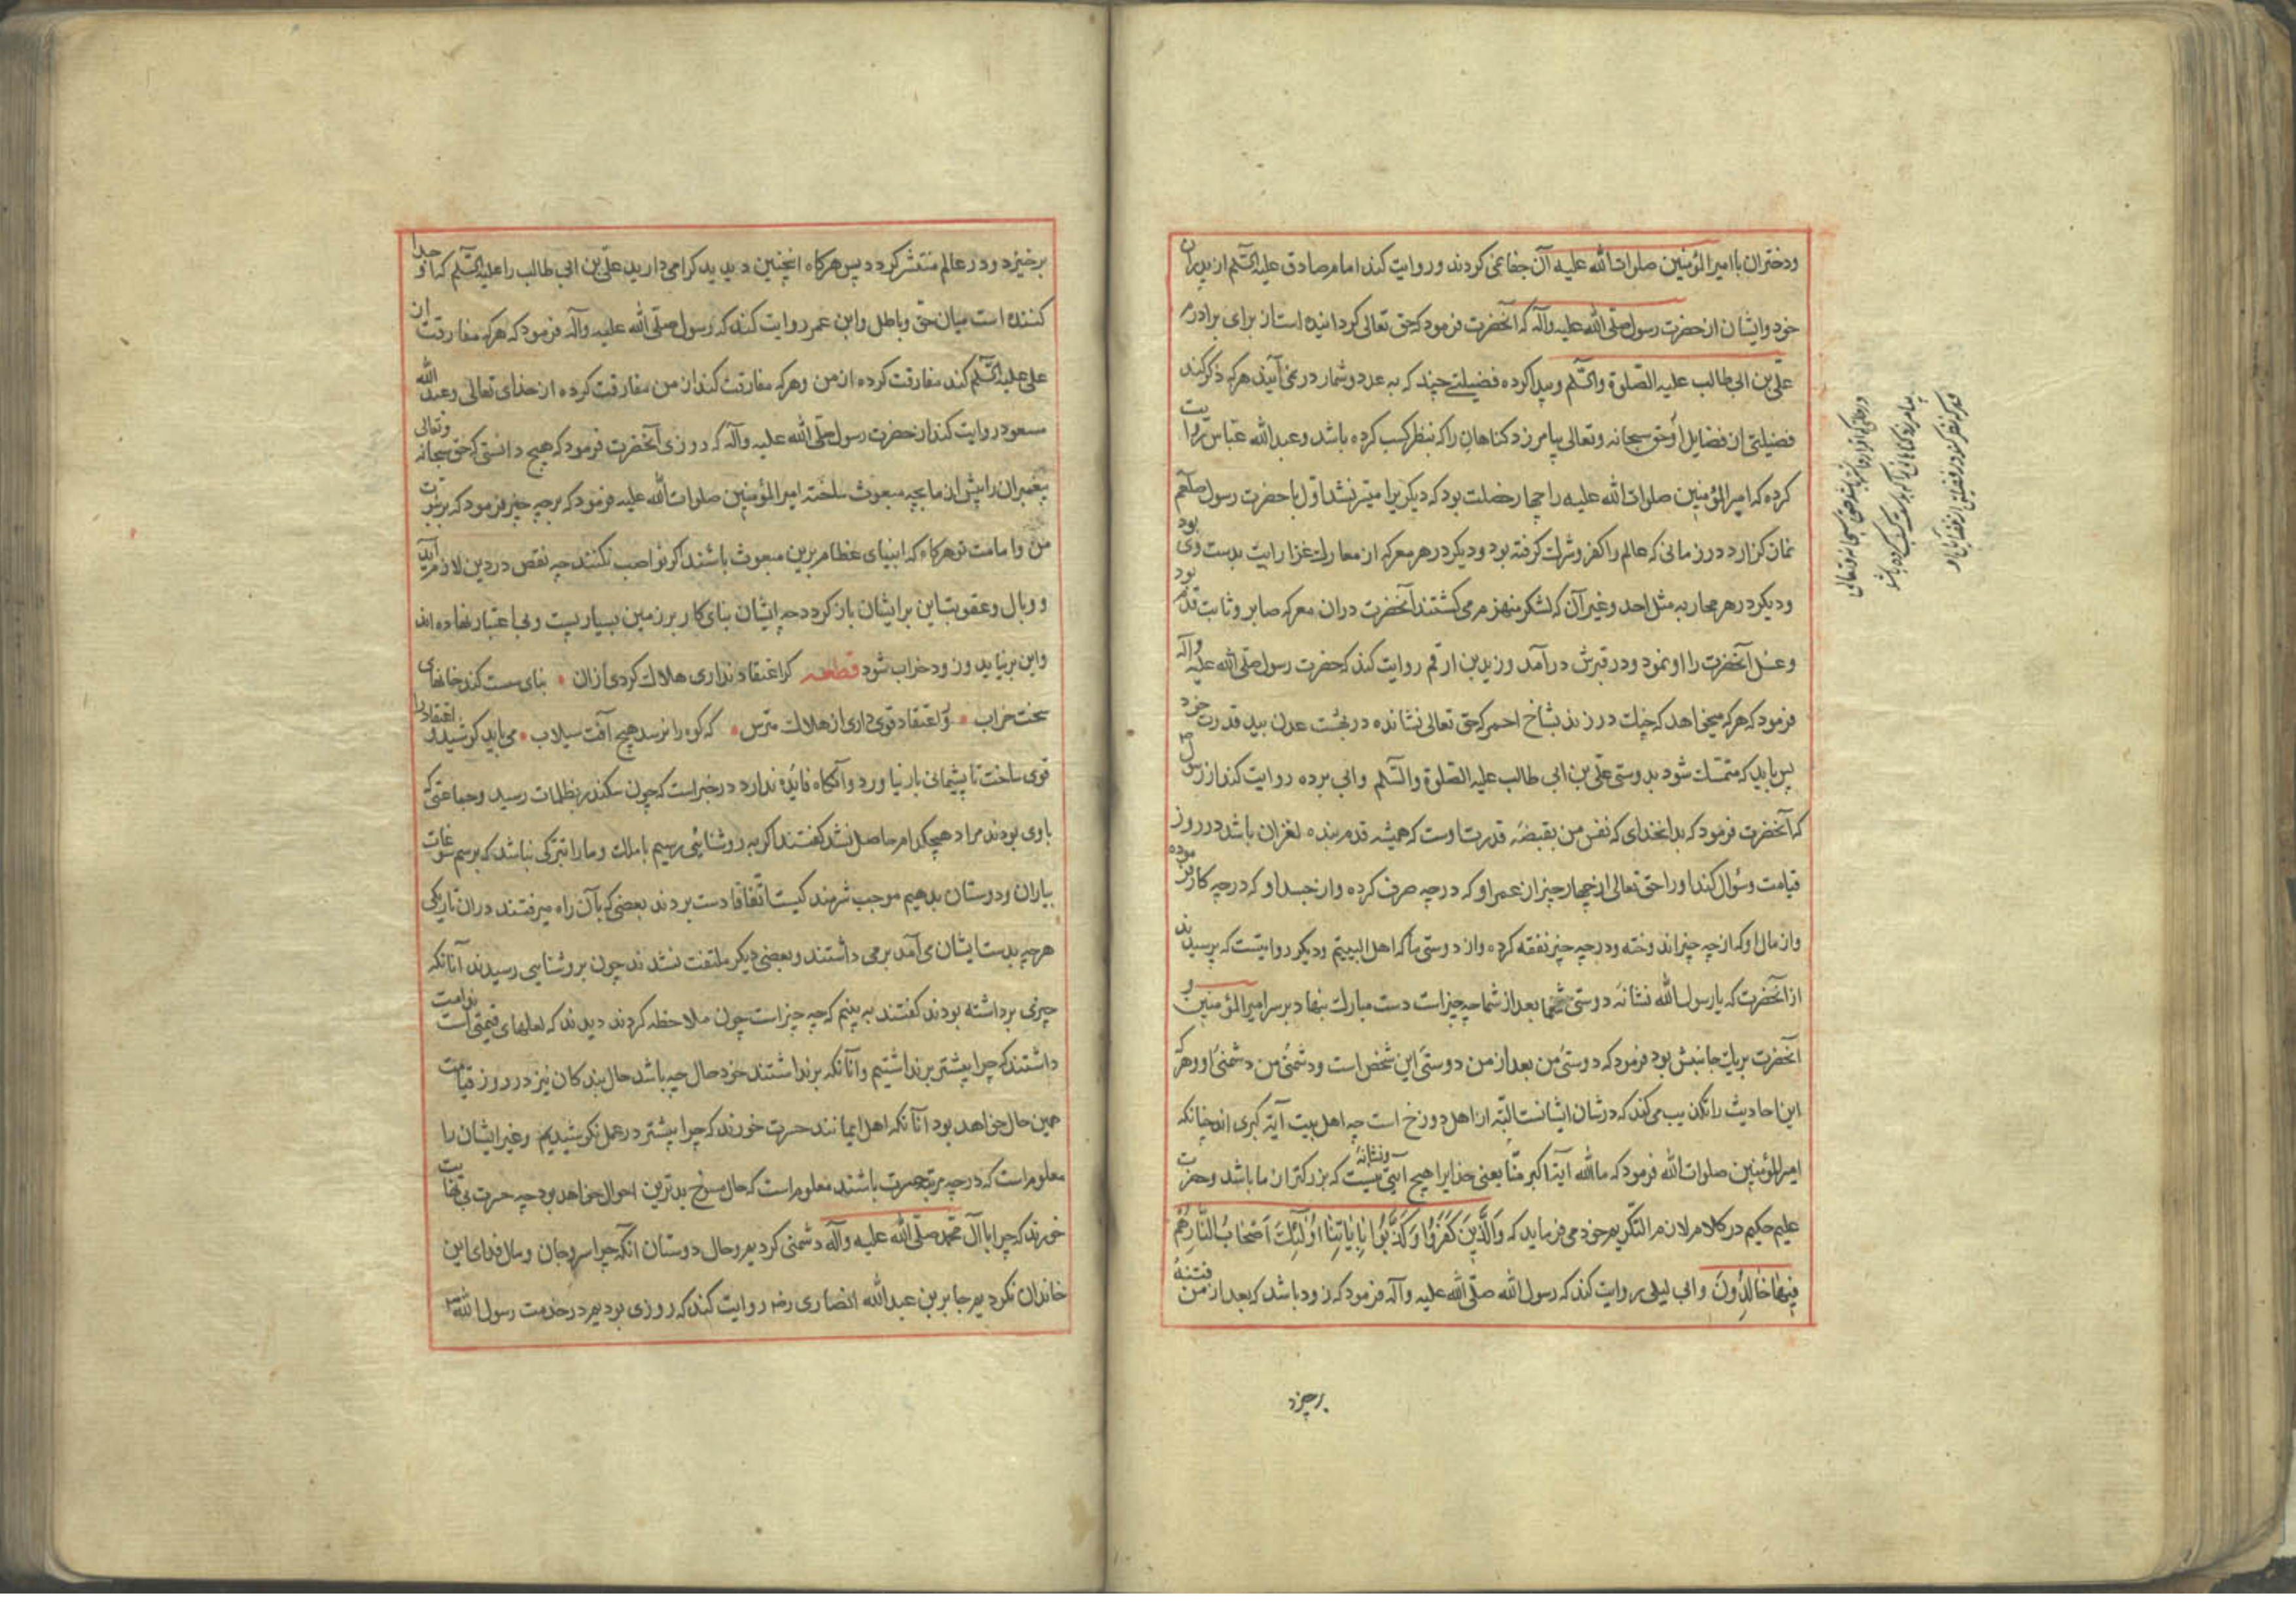 ودختران با امیرالمؤمنین صلوات الله علیه آن جفا نمی کردند و روایت کند امام صادق علیه السّلم از پدران
خود و ایشان از حضرت رسول صلّی الله علیه وآله که آنحضرت فرمود که حق تعالی کردانیده است از برای برادرم
علی بن ابی طالب علیه الصّلوة والسّلم و پیدا کرده فضیلتی چند که به عدد و شمار در نمی آیند هر که ذکر کند
فضیلتی از فضایل او حق سبحانه وتعالی بیامرزد کناهان را که بنظر کسب کرده باشد وعبد الله عبّاس روایت
کرده که امیرالمؤمنین صلوات الله علیه را چهار خصلت بود که دیکریرا میسّر نشد اوّل با حضرت رسول صلعم
نماز کزارد در زمانی که عالم را کفر و شرک کرفته بود و دیکر در هر معرکه از معارک غزا رایت بدست وی بود
و دیکر در هر محاربه مثل احد و غیر آن که لشکر منهزم می کشتند آنحضرت دران معرکه صابر و ثابت قدم بود
و غسل آنحضرت را او نمود و در قبرش در آمد و زید بن ارقم روایت کند که حضرت رسول صلّی الله علیه وآله
فرمود که هر که میخواهد که چنک در زند بشاخ احمر که حق تعالی نشانده در بهشت عدن بید قدرت خود
پس باید که متمسّک شود بدوستی علی بن ابی طالب علیه الصّلوة والسّلم وابی برده روایت کند از رسول ص
که آنحضرت فرمود که بدانخدای که نفس من بقبضه قدرت اوست که همیشه قدم بنده لغزان باشد در روز
قیامت و سؤال کند او را حق تعالی از چهار چیز از عمر او که در چه صرف کرده و از جسد او که در چه کار فرموده
و از مال او که از چه چیز اندوخته و در چه چیز نفقه کرده و از دوستی ما که اهل البیتیم و دیکر روایتست که پرسیدند
از آنحضرت که یا رسول الله نشانه دوستی شما بعد از شما چه چیز است دست مبارک بنهاد بر سر امیرالمؤمنین و
آنحضرت بر یک جانبش بود فرمود که دوستی من بعد از من دوستی این شخص است و دشمنی من دشمنی او و هر که
این احادیث را تکذیب می کند که در شان ایشانست البتّه از اهل دوزخ است چه اهل بیت آیة کبری اند چنانکه
امیرالمؤمنین صلوات الله فرمود که ما لله آیة اکبر منّا یعنی خدایرا هیچ آیتی و نشانهٔ نیست که بزرکتر از ما باشد و حضرت
علیم حکیم در کلام لازم التکریم خود می فرماید که وَالَّذِینَ کَفَرُوا وَکَذَّبُوا بِاٰیَاتِنَا اُولٰئِکَ اَصْحَابُ النَّارِ هُمْ
فِیهَا خَالِدُونَ وابی لیلی روایت کند که رسول الله صلّی الله علیه وآله فرمود که زود باشد که بعد از من فتنهٔ
برخیزد
برخیزد و در عالم منتشر کردد پس هرکاه اینچنین دیدید کرامی دارید علی بن ابی طالب را علیه السّلم که او جدا
کننده است میان حق و باطل وابن عمر روایت کند که رسول صلّی الله علیه وآله فرمود که هر که مفارقت از
علی علیه السّلم کند مفارقت کرده از من و هر که مفارقت کند از من مفارقت کرده از خدای تعالی وعبد الله
مسعود روایت کند از حضرت رسول صلّی الله علیه وآله که روزی آنحضرت فرمود که هیچ دانستی که حق سبحانه وتعالی
پیغمبران را پیش از ما بچه مبعوث ساخته امیرالمؤمنین صلوات الله علیه فرمود که بر چه چیز فرمود که بر نبوّت
من و امامت تو هرکاه که انبیای عظام برین مبعوث باشند اکر نواصب نکنند چه نقص در دین لازم آید
و وبال و عقوبت این بر ایشان باز کردد چه ایشان بنای کار بر زمین بسیار پست و بی اعتبار نهاده اند
و این بر نیاید و زود خراب شود قطعه کر اعتقاد نداری هلاک کردی ازان • بنای سست کند خانهای
سخت خراب • ور اعتقاد قوی داری از هلاک مترس • که کوه را نرسد هیچ آفت سیلاب • می باید کوشید و اعتقاد را
قوی ساخت تا پشیمانی بار نیاورد و آنکاه فائده ندارد در خبر است که چون سکندر بظلمات رسید و جماعتی که
با وی بودند مراد هیچکدام حاصل نشد کفتند اکر به روشنایی رسیم با ملک و ما را تبرّکی نباشد که برسم سوغات
بیاران و دوستان بدهیم موجب شرمندکیست اتّفاقا دست بردند بعضی که بآن راه میرفتند دران تاریکی
هرچه بدست ایشان می آمد بر می داشتند و بعضی دیکر ملتفت نشدند چون بروشنایی رسیدند آنانکه
چیزی برداشته بودند کفتند به بینیم که چه چیز است چون ملاحظه کردند دیدند که لعلهای قیمتی است ندامت
داشتند که چرا بیشتر برنداشتیم و آنانکه برنداشتند خود حال چه باشد حال بندکان نیز در روز قیامت
همین حال خواهد بود آنانکه اهل ایمانند حسرت خورند که چرا بیشتر در عمل نکوشیدیم و غیر ایشان را
معلوم است که در چه مرتبه حسرت باشند معلوم است که حال بدترین احوال خواهد بود چه حسرت بی نهایت
خورند که چرا با آل محمّد صلّی الله علیه وآله دشمنی کردیم و حال دوستان آنکه چرا سر و جان و مال فدای این
خاندان نکردیم جابر بن عبد الله انصاری رضه روایت کند که روزی بودیم در خدمت رسول الله